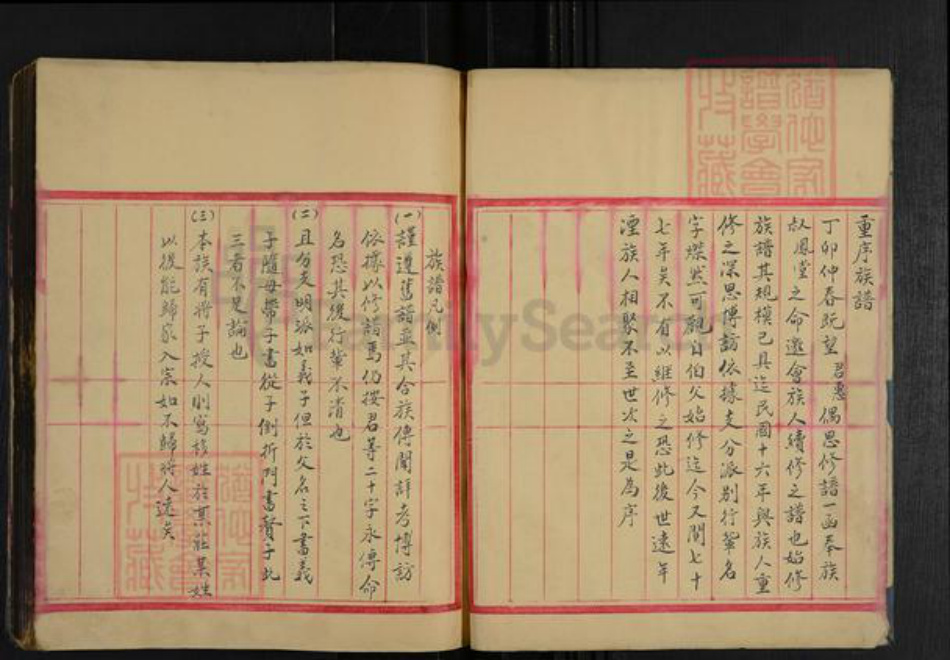 重序族譜
丁卯仲春既望君惠偶思修譜一函奉族
叔鳳堂之命邀會族人續修之譜也始修
族譜其規模已具迄民國十六年與族人重
修之深思博訪依據支分派别行輩名
字燦然可觀自伯父始修迄今又閱七十
七年矣不有以維修之恐此後世遠年
湮族人相聚不至世次之是為序
族譜凡例
(一)謹遵舊譜並其合族傳聞詳考博訪
依據以修譜焉仍按君等二十字永傳命
名恐其後行輩不清也
(二)且分支明派如義子但於父名之下書義
子隨母帶子書從子倒折門書賢子此
三者不足論也
(三)本族有將子授人則寫該姓於某莊某姓
以後能歸家入宗如不歸将人遠矣
FamilySearch
猶他家
譜學會
收藏
猶他家
譜學會
收藏